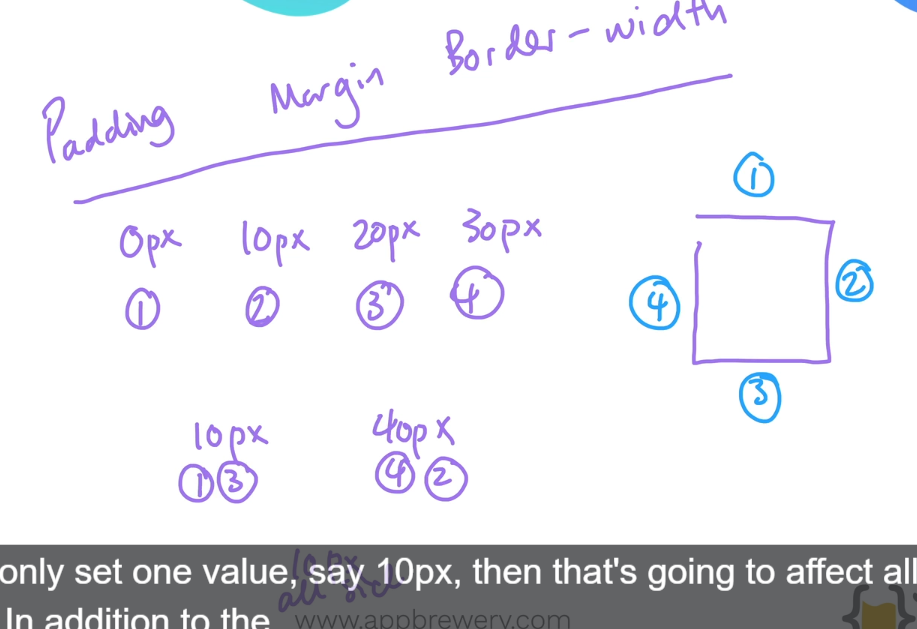 Padding Margin Border-width
0px 10px 20px 30px
1 2 3 4
1
4 2
3
10px 40px
1 3 4 2
10px
all side
only set one value, say 10px, then that's going to affect all
In addition to the
www.appbrewery.com